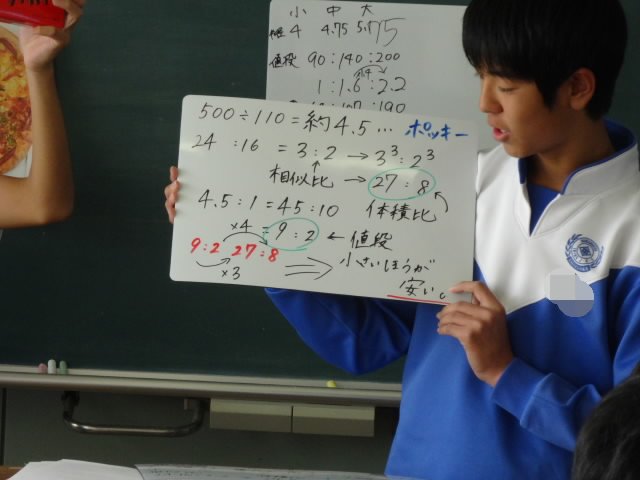 小 中 大
4 4.75
値段 90:140:200
1:1.6:2.2
190
500÷110=約4.5… ポッキー
24:16=3:2→3³:2³
相似比→27:8
4.5:1=45:10 体積比
×4 =9:2 ←値段
9:2 27:8 小さいほうが
×3 安い。